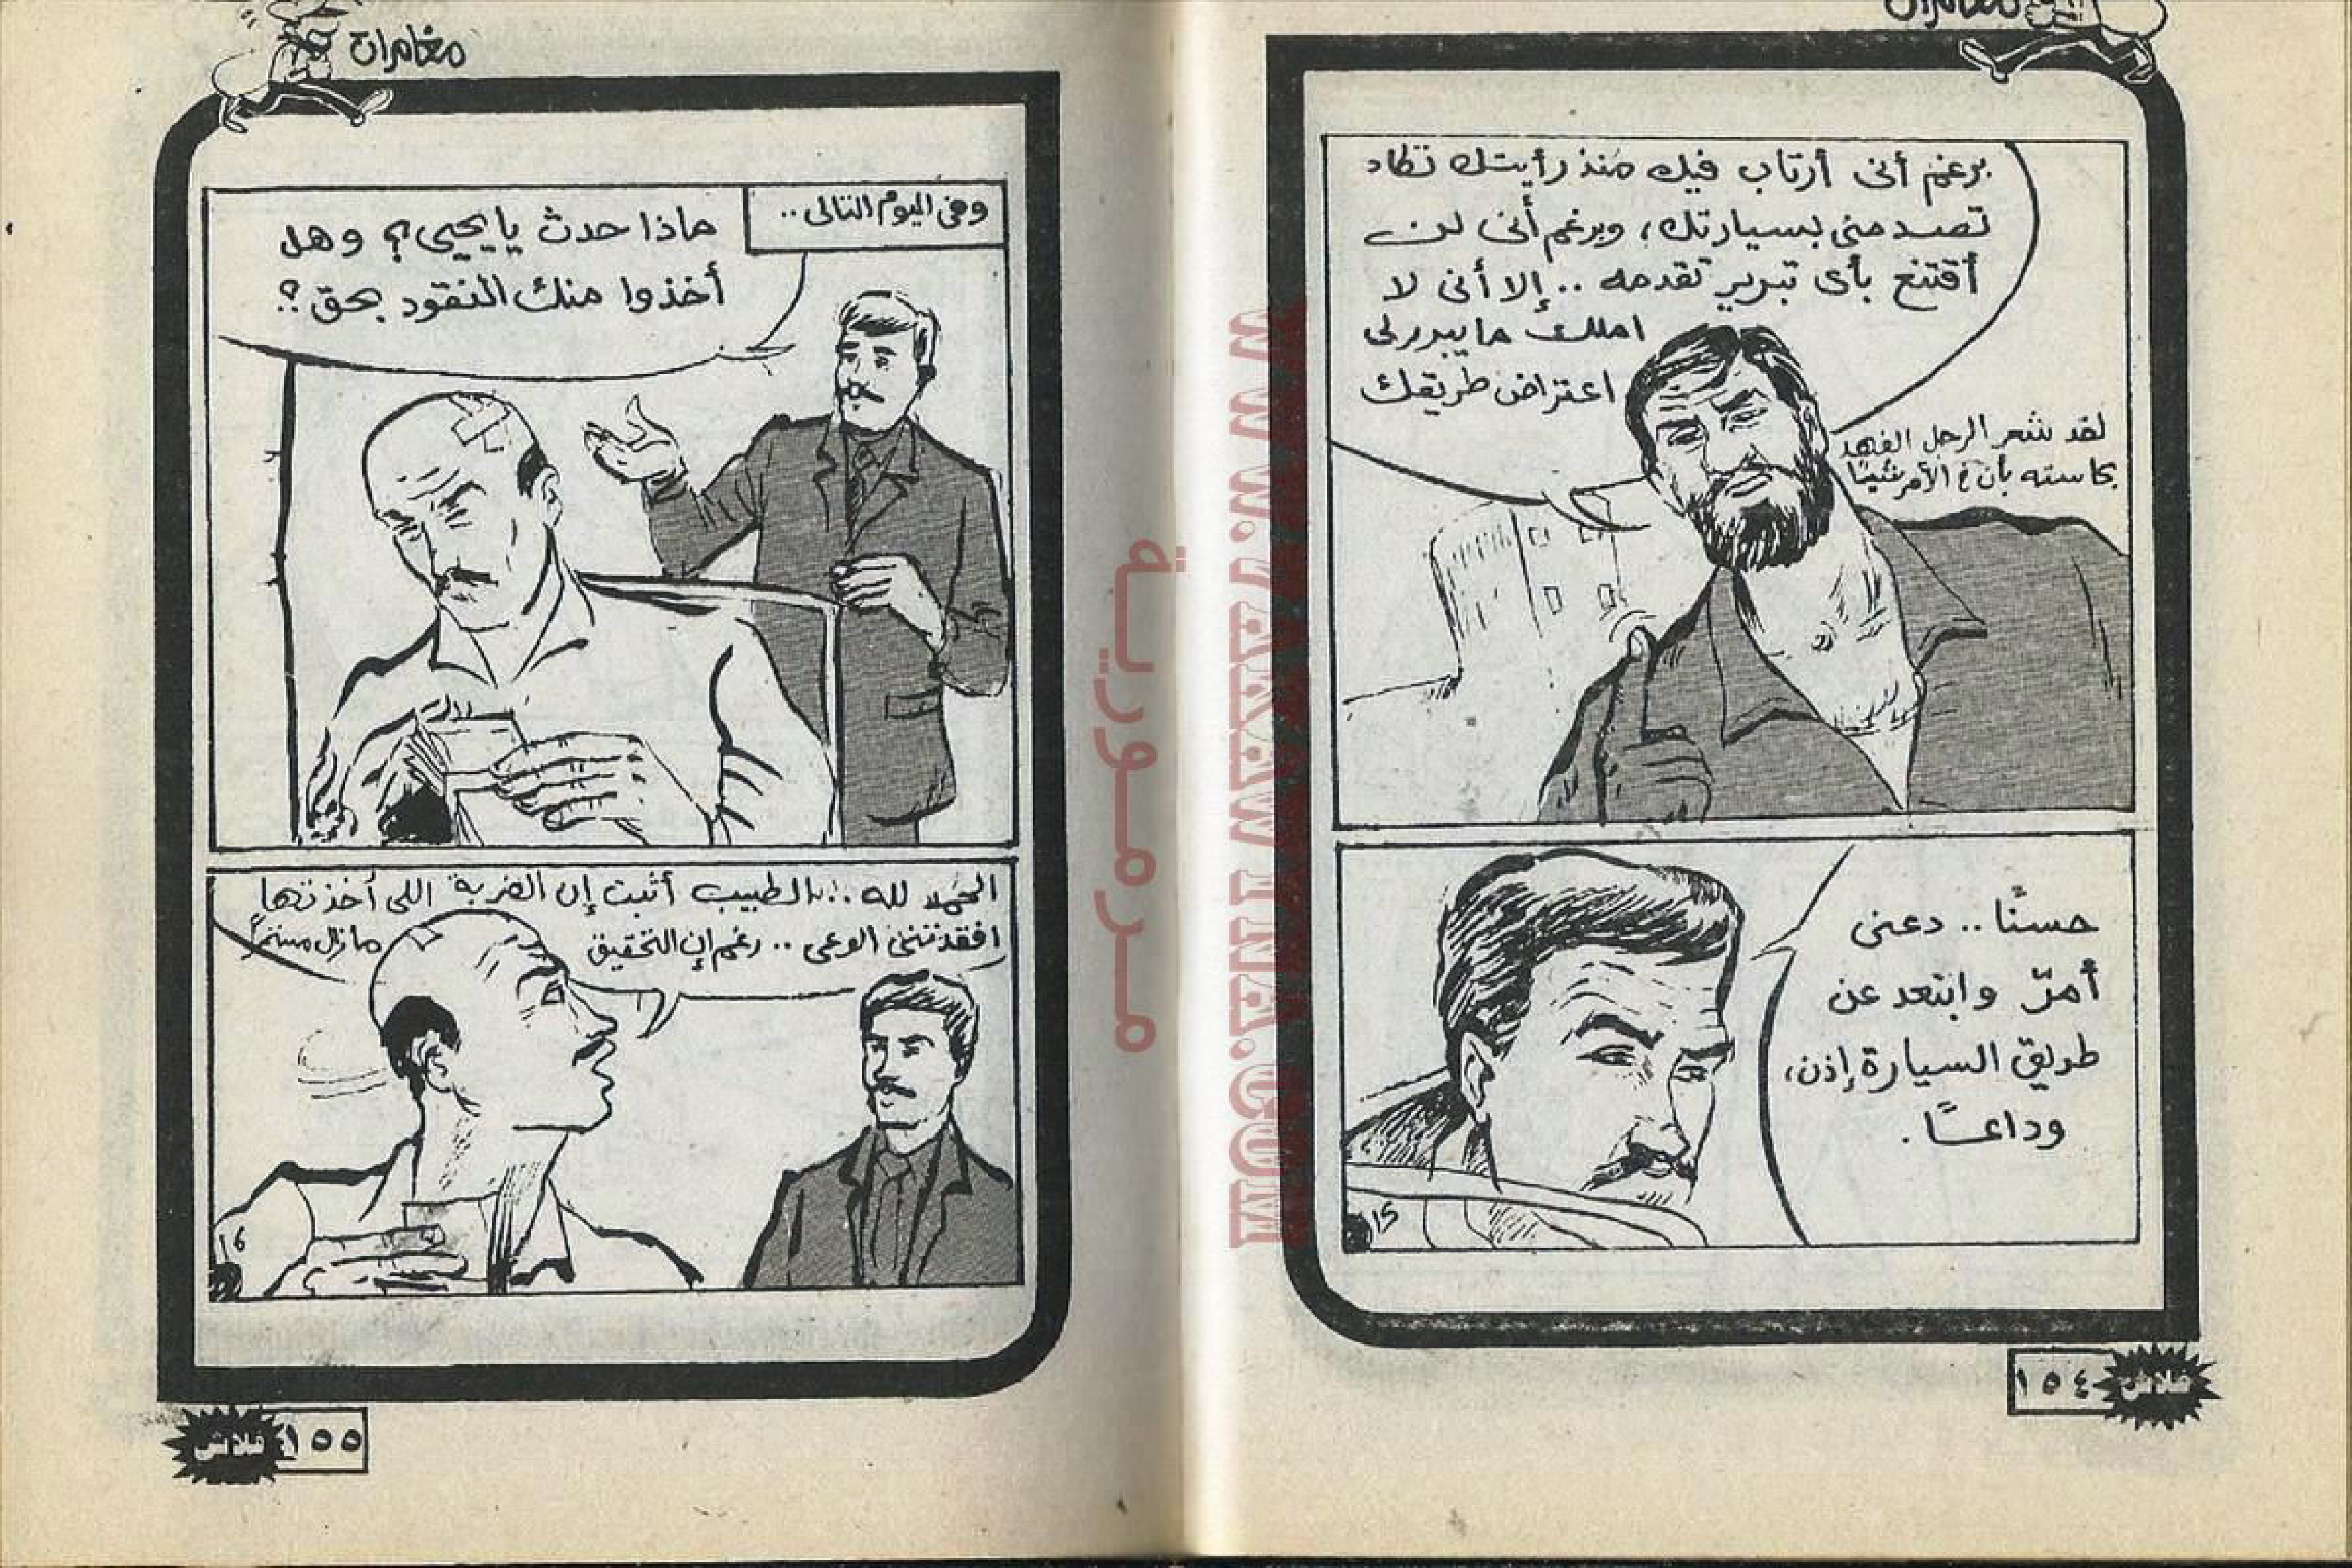 مغامرات
برغم أنى أرتاب فيك منذ رأيتك تكاد
تصدمنى بسيارتك، وبرغم أنى لن
أقتنع بأى تبرير تقدمه .. إلا أنى لا
املك ما يبررلى
اعتراض طريقك
لقد شعر الرجل الفهد
بحاسته بأن فى الأمر شيئًا
حسنًا .. دعنى
أمرّ وابتعد عن
طريق السيارة إذن،
وداعـًا.
15
١٥٤
فلاش
مغامرات
وفى اليوم التالى ..
ماذا حدث يا يحيى؟ وهل
أخذوا منك النقود بحق؟
الحمد لله .. الطبيب أثبت إن الضربة اللى أخذتها
افقدتنى الوعى .. رغم إن التحقيق مازال مستمرًا
16
١٥٥
فلاش
مرمورية